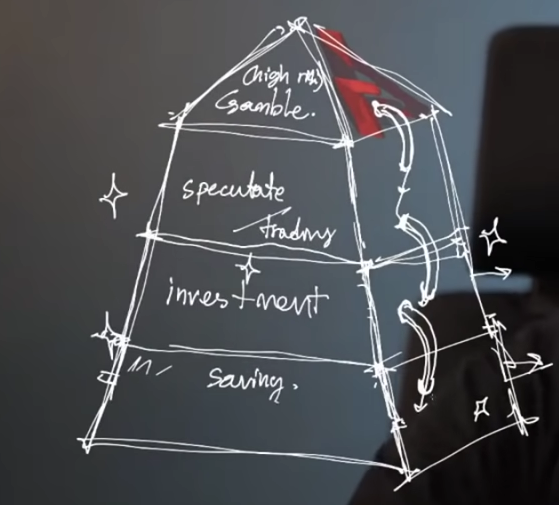 (high risk)
Gamble.
speculate
/ trading
investment
saving.